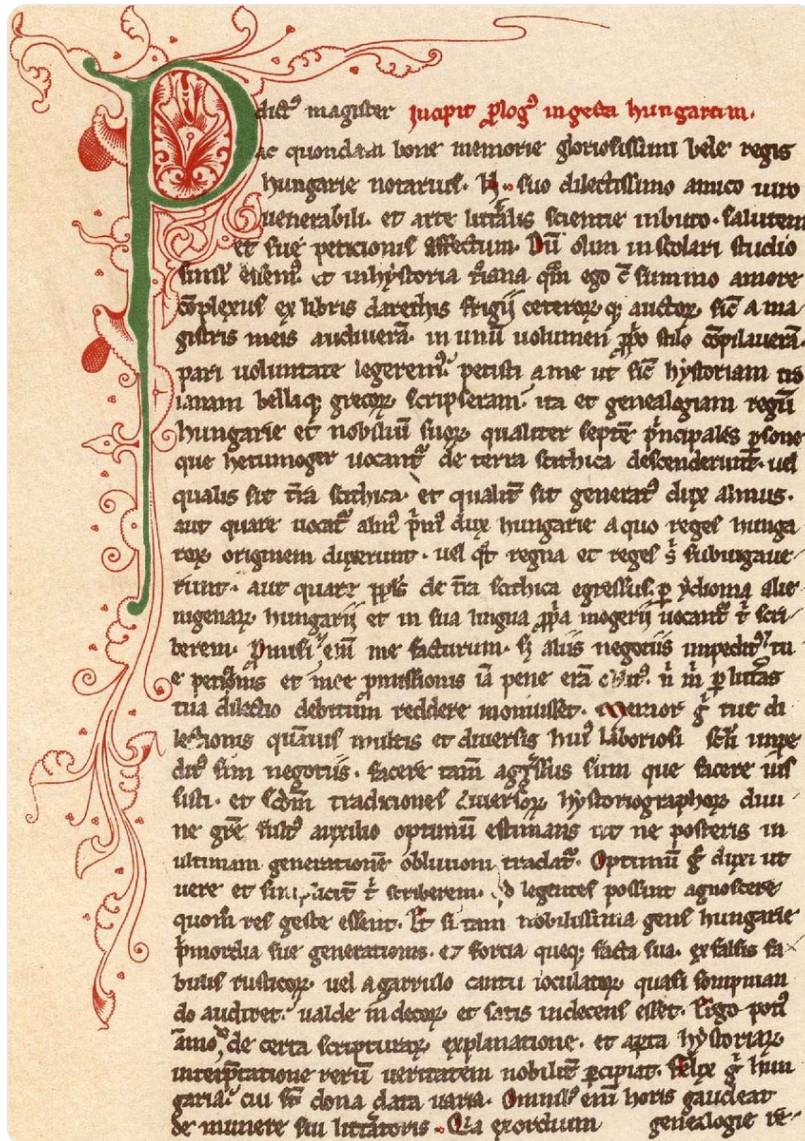 P dict⁹ magister Incipit ꝓlog⁹ in gesta hungarum.
ac quondam bone memorie gloriosissimi bele regis
hungarie notarius. N. suo dilectissimo amico uiro
uenerabili. et arte litt̄alis scientie inbuto. salutem
et sue peticionis effectum. Dū olim in scolari studio
simul̕ essem⁹. et in hystoria t̕iana qm̄ ego cū summo amore
cōplexus ex libris darethis frigij ceteroꝝ q; auctoꝝ. sic̄ a ma
gistris meis audiuerā. in unū uolumen ꝓp̕o stilo cōpilauerā.
pari uoluntate legerem⁹. petisti a me ut sic̄ hystoriam tro
ianam bellaq; grecoꝝ scripseram. ita et genealogiam regū
hungarie et nobiliū suoꝝ. qualiter septē p̕ncipales ꝑsone
que hetumoger uocant᷑ de terra scithica descenderunt. uel
qualis sit t̕ra scithica. et qualit̕ sit generat⁹ dux almus.
aut quare uocat᷑ alm⁹ p̕m⁹ dux hungarie a quo reges hunga
roꝝ originem duxerunt. uel qt̕ regna et reges s̕ subiugaue
runt. aut quare ppl̕s de t̕ra scithica egressus. ꝑ ydioma alie
nigenaꝝ hungarij et in sua lingua ꝓp̕a mogerij uocant᷑ t̕ scri
berem. Promisi eni̅ me facturum. sꝫ aliis negotiis impedit⁹. tu
e peticionis et mee ꝓmissionis iā pene erā oblit⁹. n̕ m̕ ꝑ litt̄as
tua dilectio debitum reddere monuisset. Memor g̕ tue di
lectionis quāuis multis et diuersis hui⁹ laboriosi scl̕i impe
dit⁹ sim negotiis. facere tam̄ aggressus sum que facere ius
sisti. et scd̄m traditiones diuersoꝝ hystoriographoꝝ diui
ne gr̄e fult⁹ auxilio optimū estimans ut ne posteris in
ultimam generationē obliuioni tradat᷑. Optimū g̕ duxi ut
uere et simplicit̕ t̕ scriberem. qd̕ legentes possint agnoscere
quom̄ res geste essent. Et si tam nobilissima gens hungarie
p̕mordia sue generationis. et fortia queq; facta sua. ex falsis fa
bulis rusticoꝝ. uel a garrulo cantu ioculatoꝝ. quasi sompnian
do audiret. ualde indecoꝝ et satis indecens esset. Ergo poti⁹
ām̊ de certa scripturaꝝ explanatione. et aperta hystoriaꝝ
interp̕tatione rerū ueritatem nobilit̕ ꝑcipiat. Felix g̕ hun
garia. cui st̄ dona data uaria. Omnib⁹ eni̅ horis gaudeat
de munere sui litt̄atoris. Quia exordium genealogie re-